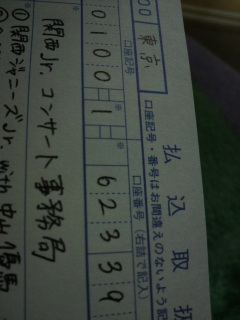 払込取扱
口座記号・番号はお間違えのないよう記
00 東京
口座記号
口座番号(右詰で記入)
0 1 0 0 1 ※ 6 2 3 3 9
関西Jr. コンサート事務局
①関西ジャニーズJr. with 中山優馬